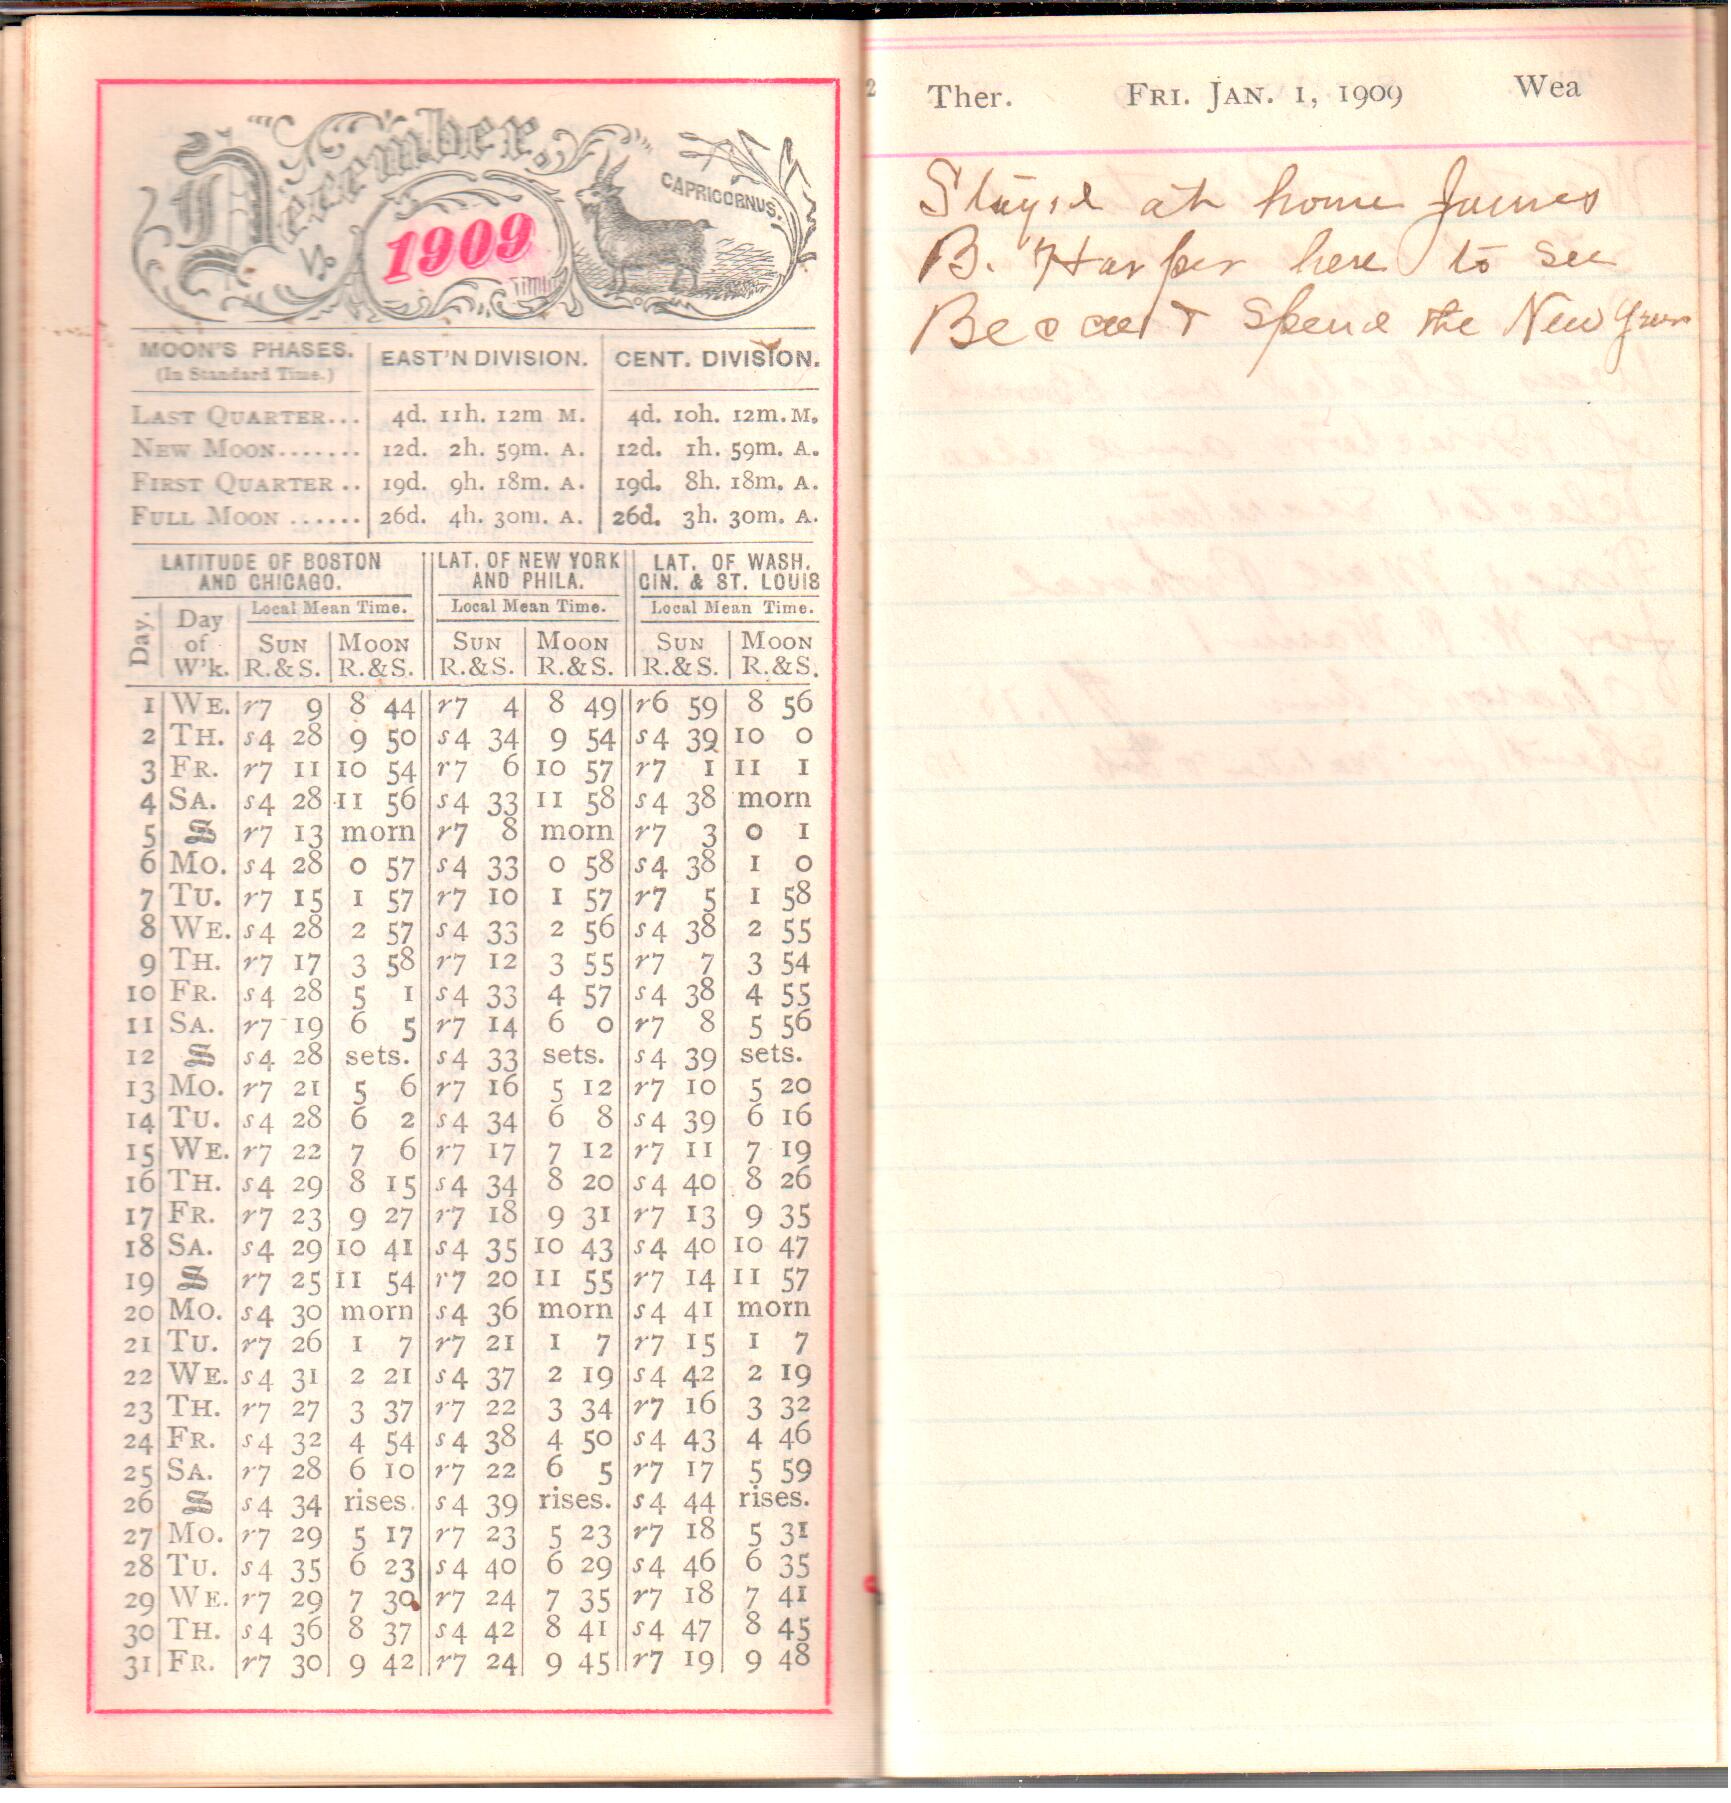 December,
1909
CAPRICORNUS.
MOON'S PHASES. EAST'N DIVISION. CENT. DIVISION.
(In Standard Time.)
LAST QUARTER... 4d. 11h. 12m M. 4d. 10h. 12m. M.
NEW MOON....... 12d. 2h. 59m. A. 12d. 1h. 59m. A.
FIRST QUARTER .. 19d. 9h. 18m. A. 19d. 8h. 18m. A.
FULL MOON ...... 26d. 4h. 30m. A. 26d. 3h. 30m. A.
LATITUDE OF BOSTON LAT. OF NEW YORK LAT. OF WASH.
AND CHICAGO. AND PHILA. CIN. & ST. LOUIS
Local Mean Time. Local Mean Time. Local Mean Time.
Day. Day of W'k. SUN R.&S. MOON R.&S. SUN R.&S. MOON R.&S. SUN R.&S. MOON R.&S.
1 WE. r7 9 8 44 r7 4 8 49 r6 59 8 56
2 TH. s4 28 9 50 s4 34 9 54 s4 39 10 0
3 FR. r7 11 10 54 r7 6 10 57 r7 1 11 1
4 SA. s4 28 11 56 s4 33 11 58 s4 38 morn
5 S r7 13 morn r7 8 morn r7 3 0 1
6 MO. s4 28 0 57 s4 33 0 58 s4 38 1 0
7 TU. r7 15 1 57 r7 10 1 57 r7 5 1 58
8 WE. s4 28 2 57 s4 33 2 56 s4 38 2 55
9 TH. r7 17 3 58 r7 12 3 55 r7 7 3 54
10 FR. s4 28 5 1 s4 33 4 57 s4 38 4 55
11 SA. r7 19 6 5 r7 14 6 0 r7 8 5 56
12 S s4 28 sets. s4 33 sets. s4 39 sets.
13 MO. r7 21 5 6 r7 16 5 12 r7 10 5 20
14 TU. s4 28 6 2 s4 34 6 8 s4 39 6 16
15 WE. r7 22 7 6 r7 17 7 12 r7 11 7 19
16 TH. s4 29 8 15 s4 34 8 20 s4 40 8 26
17 FR. r7 23 9 27 r7 18 9 31 r7 13 9 35
18 SA. s4 29 10 41 s4 35 10 43 s4 40 10 47
19 S r7 25 11 54 r7 20 11 55 r7 14 11 57
20 MO. s4 30 morn s4 36 morn s4 41 morn
21 TU. r7 26 1 7 r7 21 1 7 r7 15 1 7
22 WE. s4 31 2 21 s4 37 2 19 s4 42 2 19
23 TH. r7 27 3 37 r7 22 3 34 r7 16 3 32
24 FR. s4 32 4 54 s4 38 4 50 s4 43 4 46
25 SA. r7 28 6 10 r7 22 6 5 r7 17 5 59
26 S s4 34 rises. s4 39 rises. s4 44 rises.
27 MO. r7 29 5 17 r7 23 5 23 r7 18 5 31
28 TU. s4 35 6 23 s4 40 6 29 s4 46 6 35
29 WE. r7 29 7 30 r7 24 7 35 r7 18 7 41
30 TH. s4 36 8 37 s4 42 8 41 s4 47 8 45
31 FR. r7 30 9 42 r7 24 9 45 r7 19 9 48
Ther. FRI. JAN. 1, 1909 Wea
Stayed at home James
B. Harper here to see
& Spend the New Years